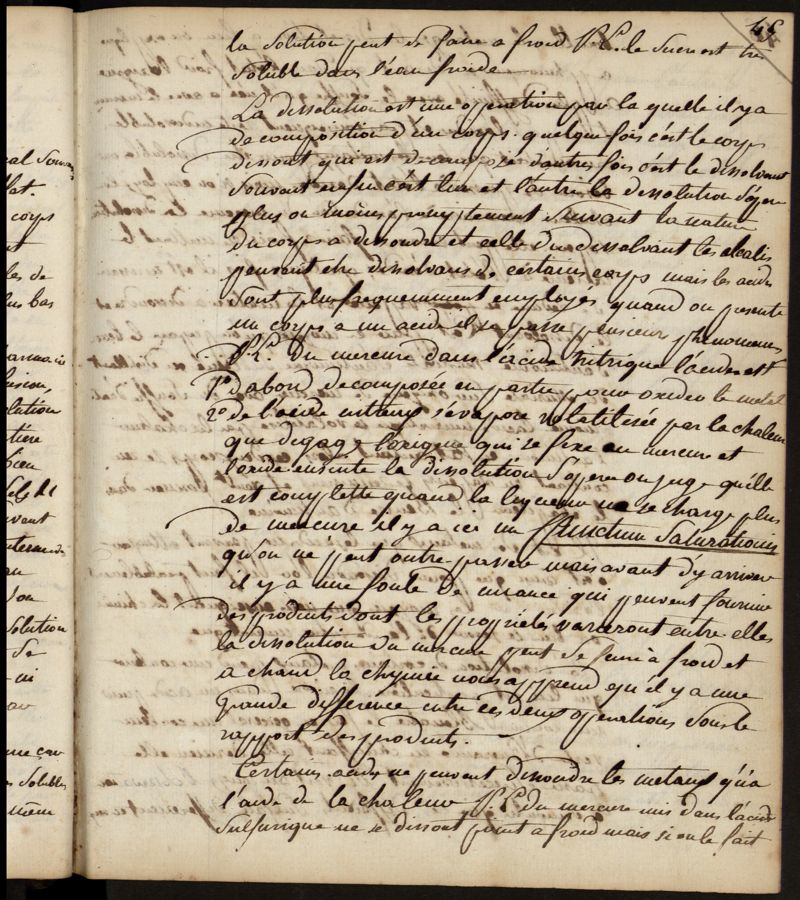 45
la Solution peut se faire a froid P.E. le Sucre est très
Soluble dans l'eau froide
La dissolution est une operation par la quelle il y a
decomposition d'un corps. quelque fois c'est le corps
dissout qui est decomposé d'autres fois c'est le dissolvant
Souvent enfin c'est l'un et l'autre la dissolution s'opere
plus ou moins promptement Suivant la nature
du corps a dissoudre et celle du dissolvant les alcalis
peuvent etre dissolvans de certains corps mais les acides
Sont plus frequemment employés quand on presente
un corps a un acide il se passe plusieurs phenomenes
P.E. du mercure dans l'acide nitrique l'acide est
1º d'abord decomposée en partie pour oxider le metal
2º de l'acide nitreux s'evapore volatilisée par la chaleur
que degage l'oxigene qui se fixe au mercure et
l'oxide ensuite la dissolution s'opere on juge qu'elle
est complette quand la liqueur ne se charge plus
de mercure il y a ici un punctum Saturationis
qu'on ne peut outre passer mais avant d'y arriver
il y a une foule de nuance qui peuvent fournir
des produits dont les propriétés varieront entre elles
la dissolution du mercure peut se faire à froid et
a chaud la chymie nous apprend qu'il y a une
grande difference entre ces deux operations Sous le
rapport des produits.
Certains acides ne peuvent dissoudre les metaux qu'a
l'aide de la chaleur P.E. du mercure mis dans l'acide
Sulfurique ne se dissout point a froid mais si on le fait